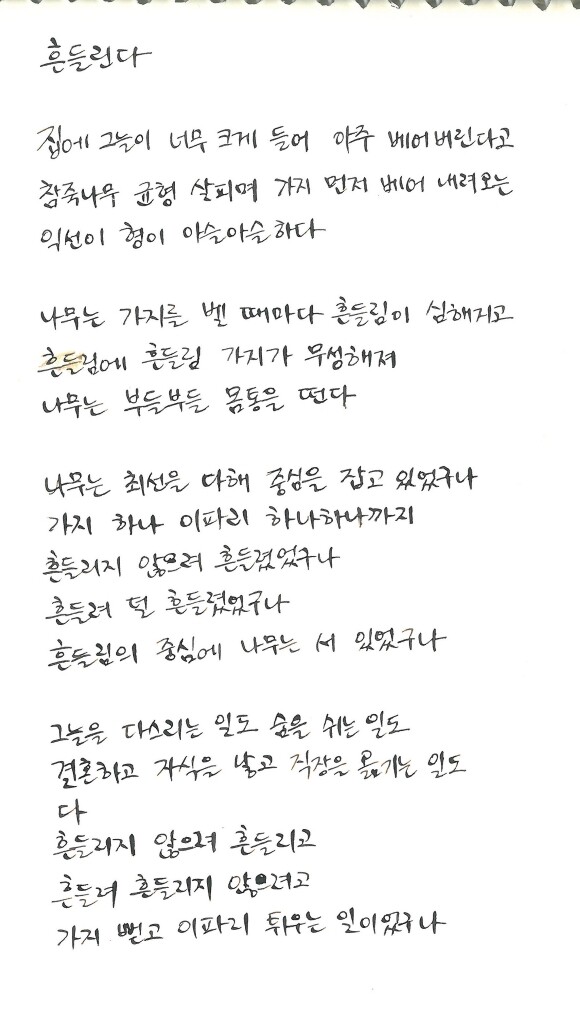 흔들린다
집에 그늘이 너무 크게 들어 아주 베어버린다고
참죽나무 균형 살피며 가지 먼저 베어 내려오는
익선이 형이 아슬아슬하다
나무는 가지를 벨 때마다 흔들림이 심해지고
흔들림에 흔들림 가지가 무성해져
나무는 부들부들 몸통을 떤다
나무는 최선을 다해 중심을 잡고 있었구나
가지 하나 이파리 하나하나까지
흔들리지 않으려 흔들렸었구나
흔들려 덜 흔들렸었구나
흔들림의 중심에 나무는 서 있었구나
그늘을 다스리는 일도 숨을 쉬는 일도
결혼하고 자식을 낳고 직장을 옮기는 일도
다
흔들리지 않으려 흔들리고
흔들려 흔들리지 않으려고
가지 뻗고 이파리 틔우는 일이었구나